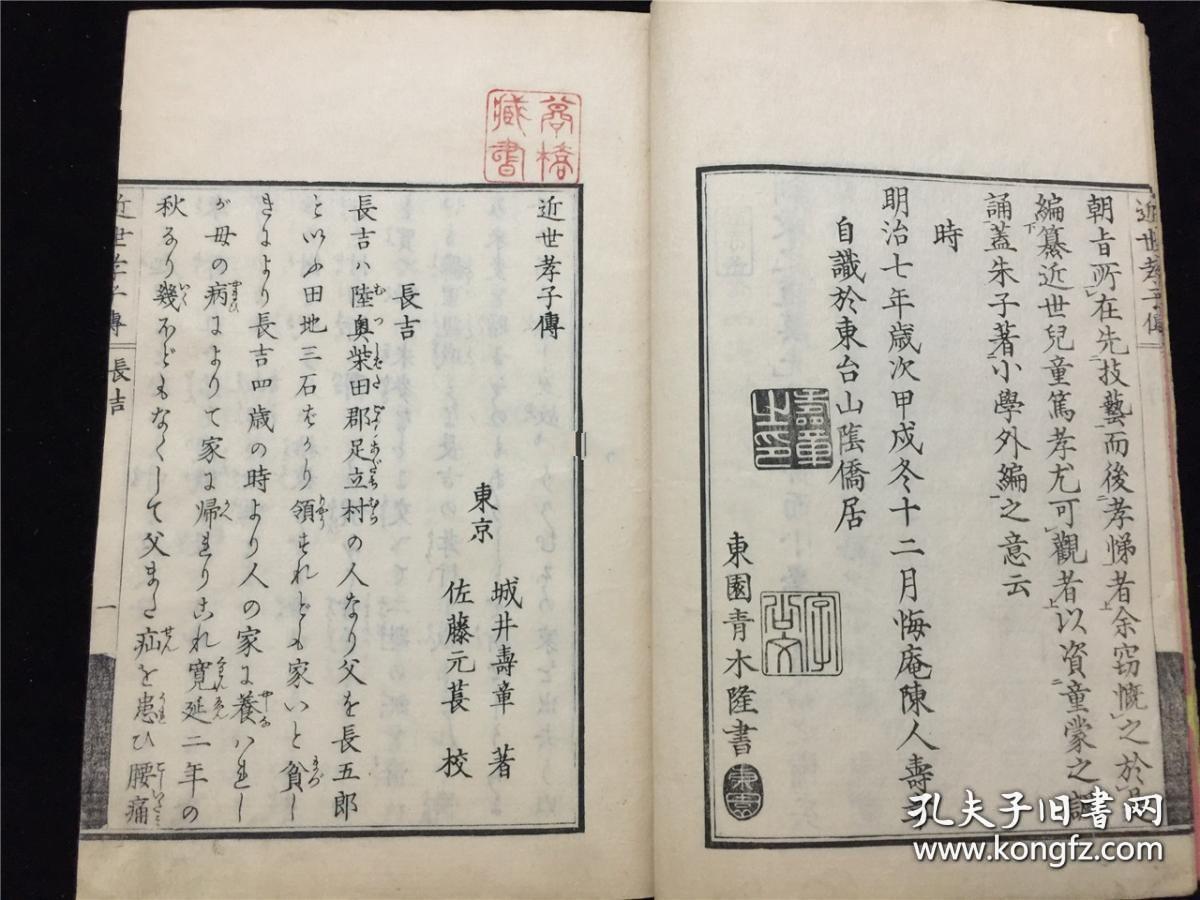 近世孝子傳
朝旨所在先技藝而後孝悌者余窃慨之於是
編纂近世兒童篤孝尤可觀者以資童蒙之
誦蓋朱子著小學外編之意云
時
明治七年歳次甲戌冬十二月悔庵陳人壽
自識於東台山蔭僑居
東園青木隆書
萬橋
藏書
近世孝子傳
東京
城井壽章 著
佐藤元萇 校
長吉
長吉ハ陸奥柴田郡足立村の人なり父を長五郎
といふ田地三石ばかり領すれども家いと貧し
きにより長吉四歳の時より人の家に養ハれし
が母の病によりて家に帰りこれ寛延二年の
秋なり幾ほどもなくして父また疝を患ひ腰痛
近世孝子傳
長吉
一
孔夫子旧书网
www.kongfz.com